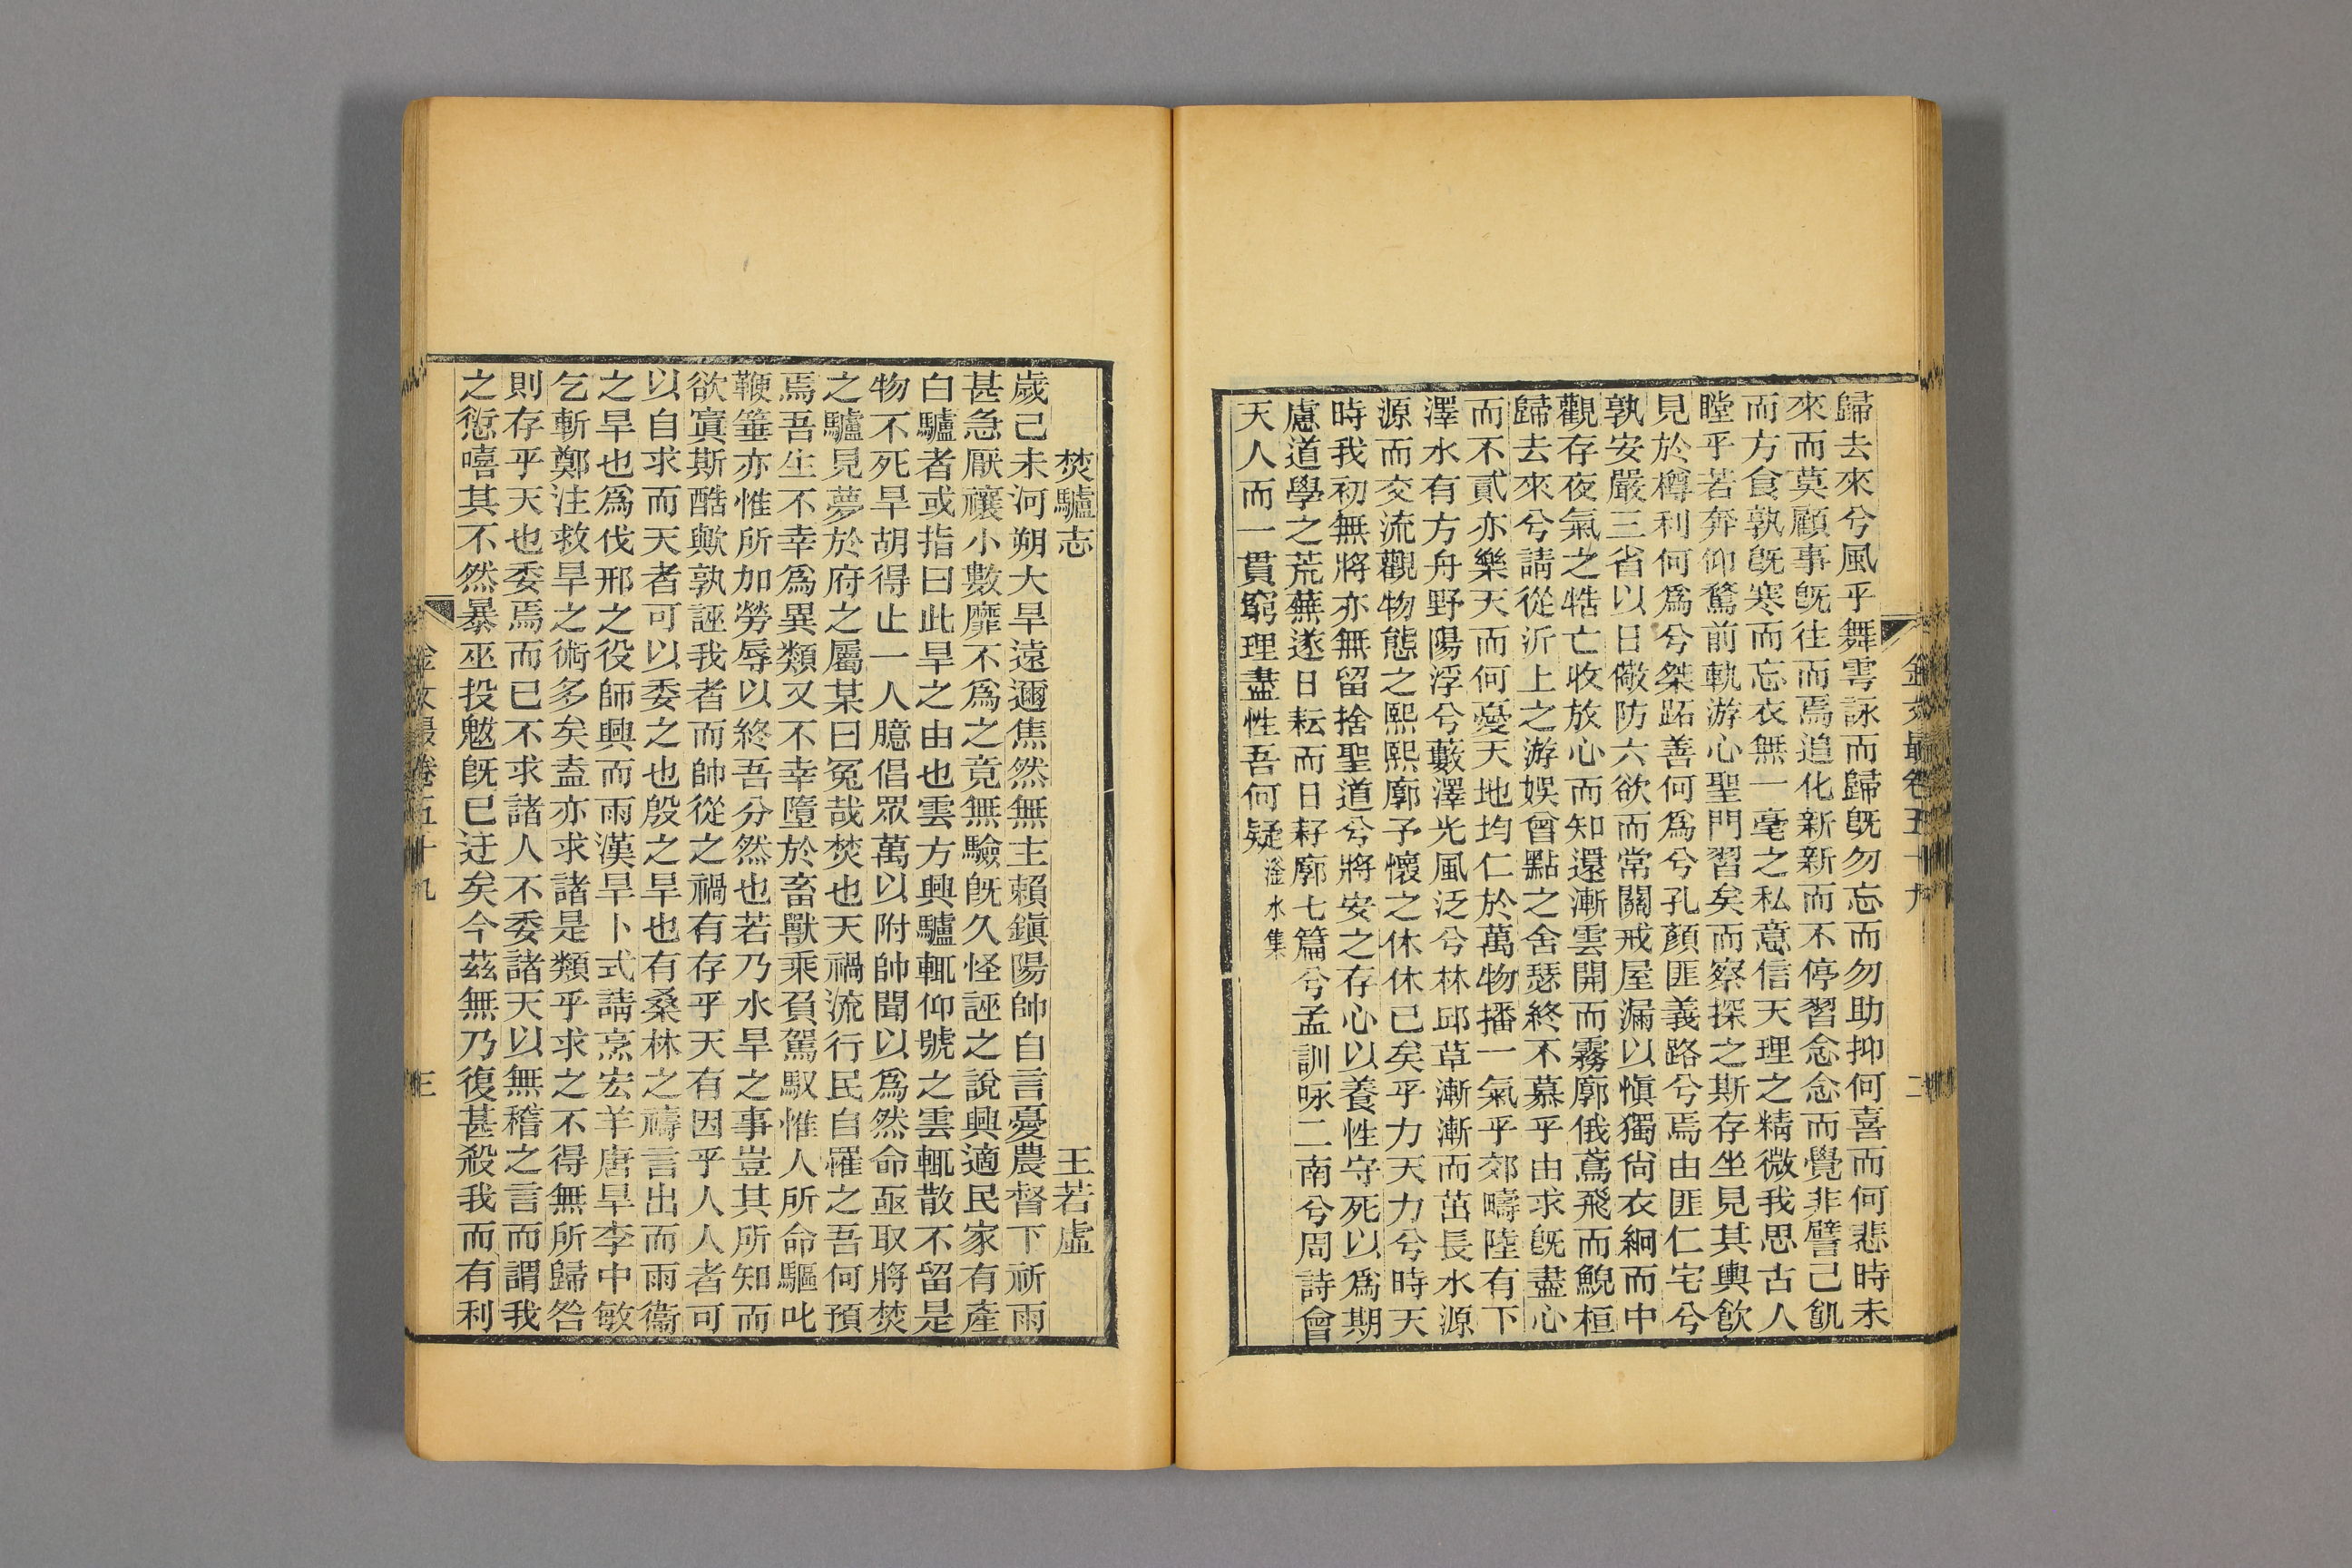 歸去來兮風乎舞雩詠而歸旣勿忘而勿助抑何喜而何悲時未
來而莫顧事旣往而焉追化新新而不停習念念而覺非譬己飢
而方食孰旣寒而忘衣無一毫之私意信天理之精微我思古人
瞠乎若奔仰驚前軌游心聖門習矣而察探之斯存坐見其輿飮
見於樽利何爲兮桀跖善何爲兮孔顏匪義路兮焉由匪仁宅兮
孰安嚴三省以日儆防六欲而常關戒屋漏以愼獨尙衣絅而中
觀存夜氣之牿亡收放心而知還漸雲開而霧廓俄鳶飛而鯢桓
歸去來兮請從沂上之游娛曾點之舍瑟終不慕乎由求旣盡心
而不貳亦樂天而何憂天地均仁於萬物播一氣乎郊疇陸有下
澤水有方舟野陽浮兮藪澤光風泛兮林邱草漸漸而茁長水源
源而交流觀物態之熙熙廓予懷之休休已矣乎力天力兮時天
時我初無將亦無留捨聖道兮將安之存心以養性守死以爲期
慮道學之荒蕪遂日耘而日耔廓七篇兮孟訓咏二南兮周詩會
天人而一貫窮理盡性吾何疑滏水集
金文最卷五十九
二
焚驢志
王若虛
歲己未河朔大旱遠邇焦然無主賴鎭陽帥自言憂農督下祈雨
甚急厭禳小數靡不爲之竟無驗旣久怪誣之說興適民家有產
白驢者或指曰此旱之由也雲方興驢輒仰號之雲輒散不留是
物不死旱胡得止一人臆倡眾萬以附帥聞以爲然命亟取將焚
之驢見夢於府之屬某曰冤哉焚也天禍流行民自罹之吾何預
焉吾生不幸爲異類又不幸墮於畜獸乘負駕馭惟人所命驅叱
鞭箠亦惟所加勞辱以終吾分然也若乃水旱之事豈其所知而
欲寘斯酷歟孰誣我者而帥從之禍有存乎天有因乎人人者可
以自求而天者可以委之也殷之旱也有桑林之禱言出而雨衞
之旱也爲伐邢之役師興而雨漢旱卜式請烹宏羊唐旱李中敏
乞斬鄭注救旱之術多矣盍亦求諸是類乎求之不得無所歸咎
則存乎天也委焉而已不求諸人不委諸天以無稽之言而謂我
之愆嘻其不然暴巫投魃旣已迂矣今茲無乃復甚殺我而有利
金文最卷五十九
三